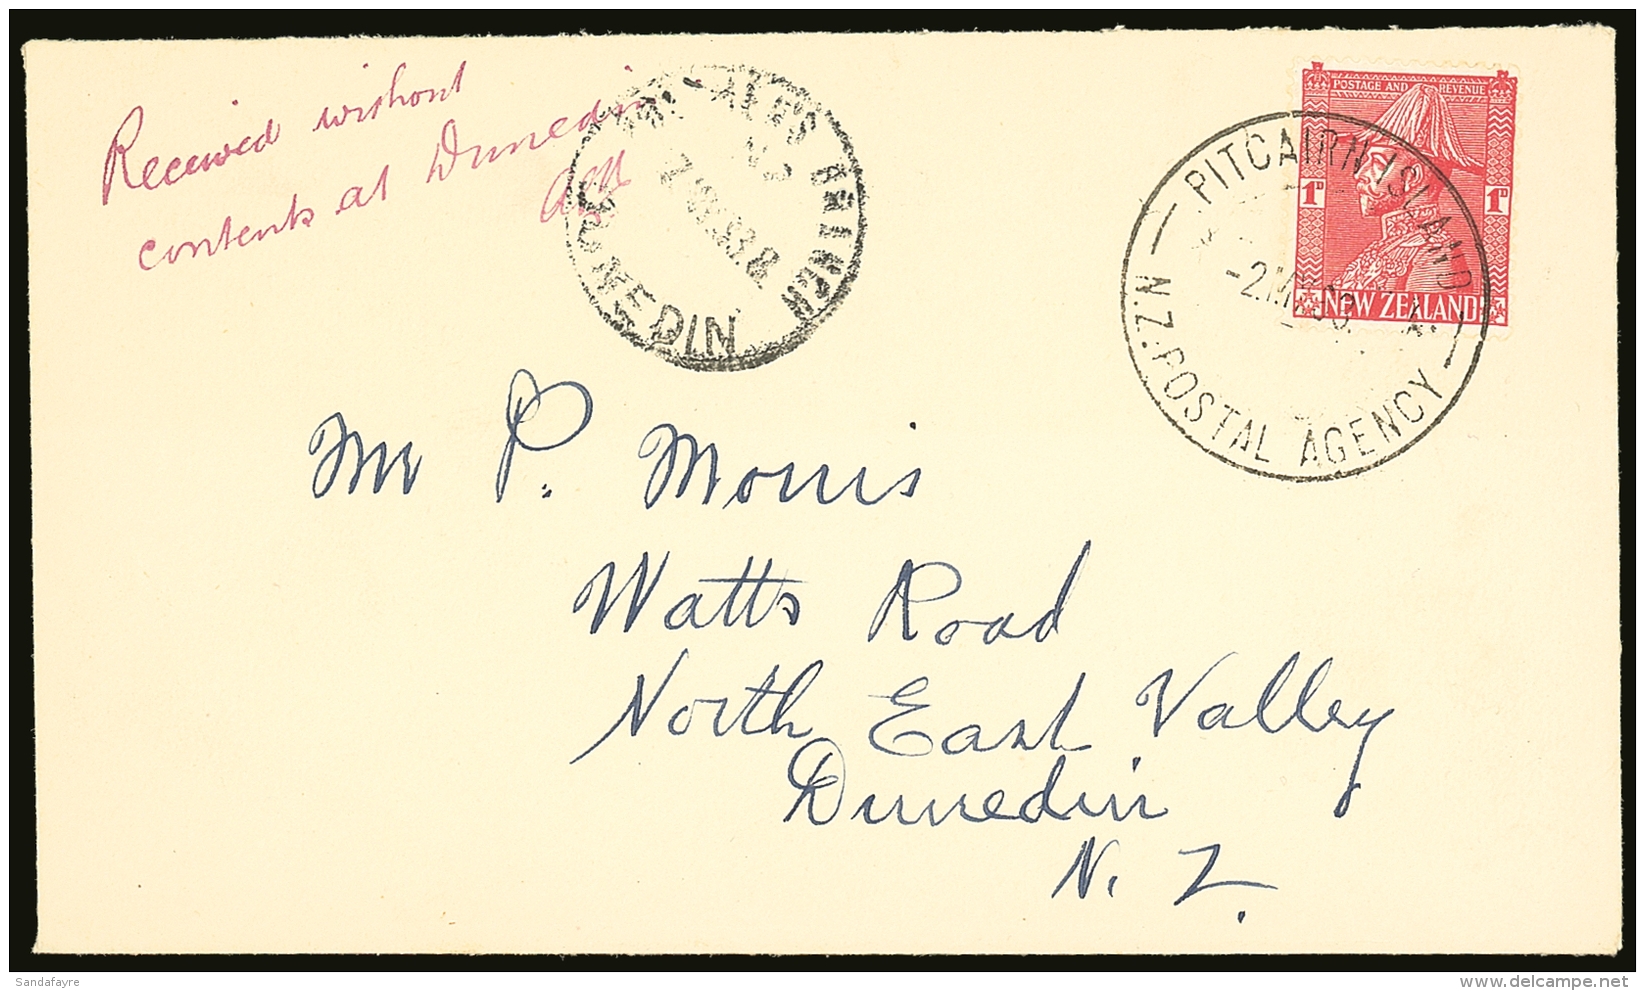 Received without
contents at Dunedin
POSTAGE AND REVENUE
1D 1D
NEW ZEALAND
PITCAIRN ISLAND
-2
N.Z. POSTAL AGENCY
BRANCH
DUNEDIN
Mr P. Morris
Watts Road
North East Valley
Dunedin
N. Z.
Sandafayre
delcampe.net